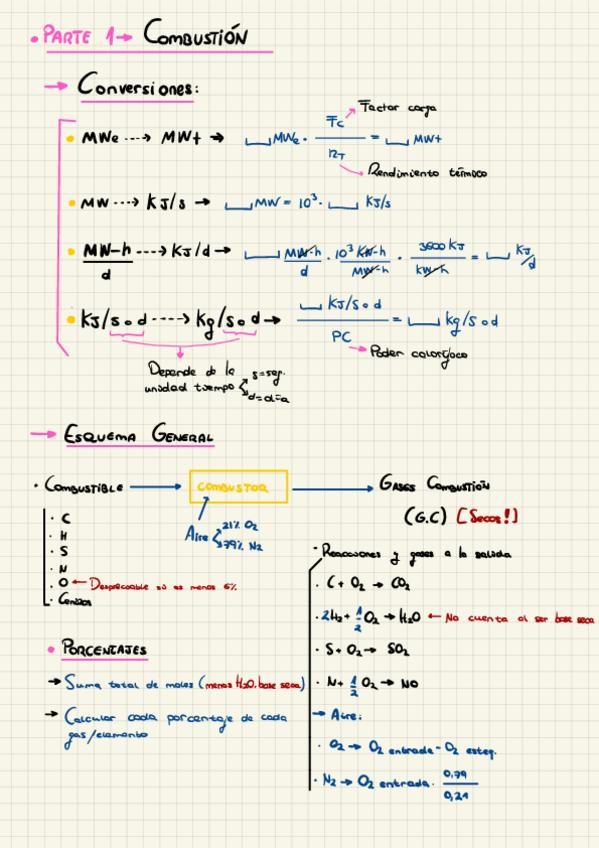 • PARTE 1 → COMBUSTIÓN
→ Conversiones:
• MWe ---→ MWt → ⎵ MWe · Fc / ηT = ⎵ MWt
Factor carga
Rendimiento térmico
• MW ---→ KJ/s → ⎵ MW = 10³ · ⎵ KJ/s
• MW-h / d ---→ KJ/d → ⎵ MW-h / d · 10³ KW-h / MW-h · 3600 KJ / kW-h = ⎵ KJ/d
• KJ/s o d ----→ Kg/s o d → ⎵ KJ/s o d / PC = ⎵ kg/s o d
Poder calorífico
Depende de la
unidad tiempo
s=seg.
d=día
→ ESQUEMA GENERAL
· COMBUSTIBLE → COMBUSTOR → GASES COMBUSTIÓN
(G.C) [Secos!]
Aire
21% O₂
79% N₂
· C
· H
· S
· N
· O ← Despreciable si es menos 6%
· Cenizas
· Reacciones y gases a la salida
· C + O₂ → CO₂
· 2H₂ + 1/2 O₂ → H₂O ← No cuenta al ser base seca
· S + O₂ → SO₂
· N + 1/2 O₂ → NO
→ Aire:
· O₂ → O₂ entrada - O₂ esteq.
· N₂ → O₂ entrada · 0,79 / 0,21
• PORCENTAJES
→ Suma total de moles (menos H₂O, base seca)
→ Calcular cada porcentaje de cada
gas/elemento